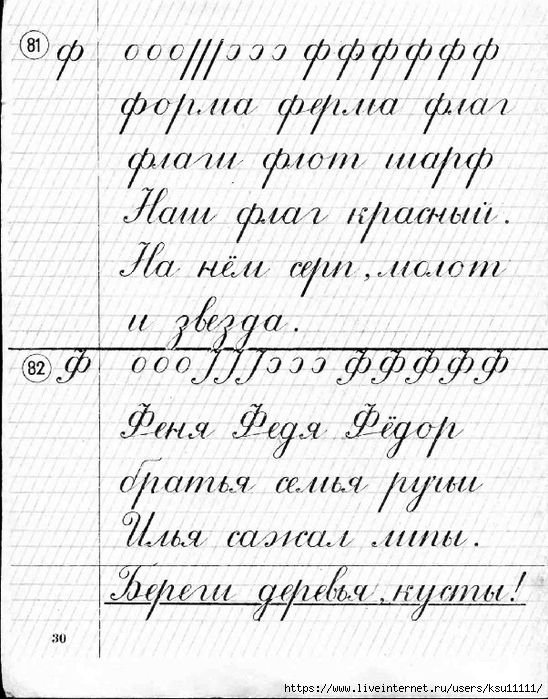 81 ф ооо///ɔɔɔ фффффф
форма ферма флаг
флаги флот шарф
Наш флаг красный.
На нём серп, молот
и звезда.
82 Ф ооо ɔɔɔ ФФФФФ
Феня Федя Фёдор
братья семья ручьи
Илья сажал липы.
Береги деревья, кусты!
30
https://www.liveinternet.ru/users/ksu11111/